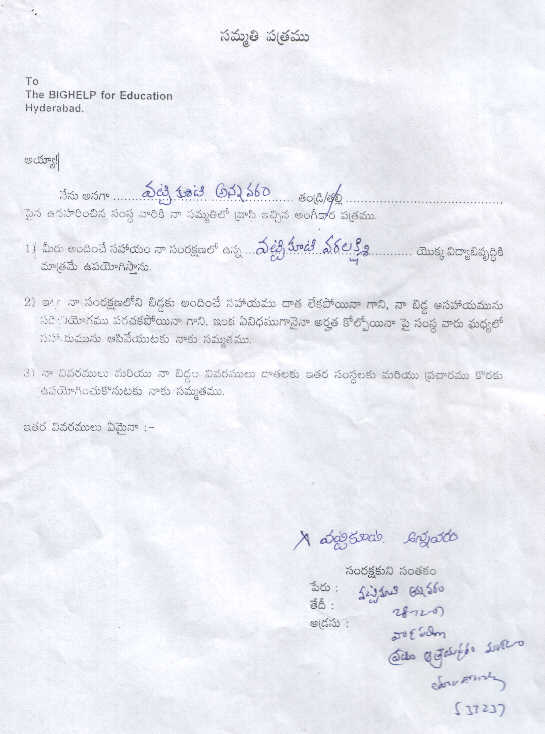 సమ్మతి పత్రము
To
The BIGHELP for Education
Hyderabad.
అయ్యా!
నేను అనగా వట్టికూటి అన్నవరం తండ్రి/తల్లి
పైన ఉదహరించిన సంస్థ వారికి నా సమ్మతిలో వ్రాసి ఇచ్చిన అంగీకార పత్రము.
1) మీరు అందించే సహాయం నా సంరక్షణలో ఉన్న వట్టికూటి వరలక్ష్మి యొక్క విద్యాభివృద్ధికి
మాత్రమే ఉపయోగిస్తాను.
2) నా సంరక్షణలోని బిడ్డకు అందించే సహాయము దాత లేకపోయినా గాని, నా బిడ్డ ఆసహాయమును
సద్వినియోగము పరచకపోయినా గాని, ఇంకా ఏవిధముగానైనా అర్హత కోల్పోయినా పై సంస్థ వారు మధ్యలో
సహాయమును ఆపివేయుటకు నాకు సమ్మతము.
3) నా వివరములు మరియు నా బిడ్డల వివరములు దాతలకు ఇతర సంస్థలకు మరియు ప్రచారము కొరకు
ఉపయోగించుకొనుటకు నాకు సమ్మతము.
ఇతర వివరములు ఏమైనా :-
X వట్టికూటి అన్నవరం
సంరక్షకుని సంతకం
పేరు : వట్టికూటి అన్నవరం
తేదీ :
అడ్రసు :
ఆత్రేయపురం మండలం
533237